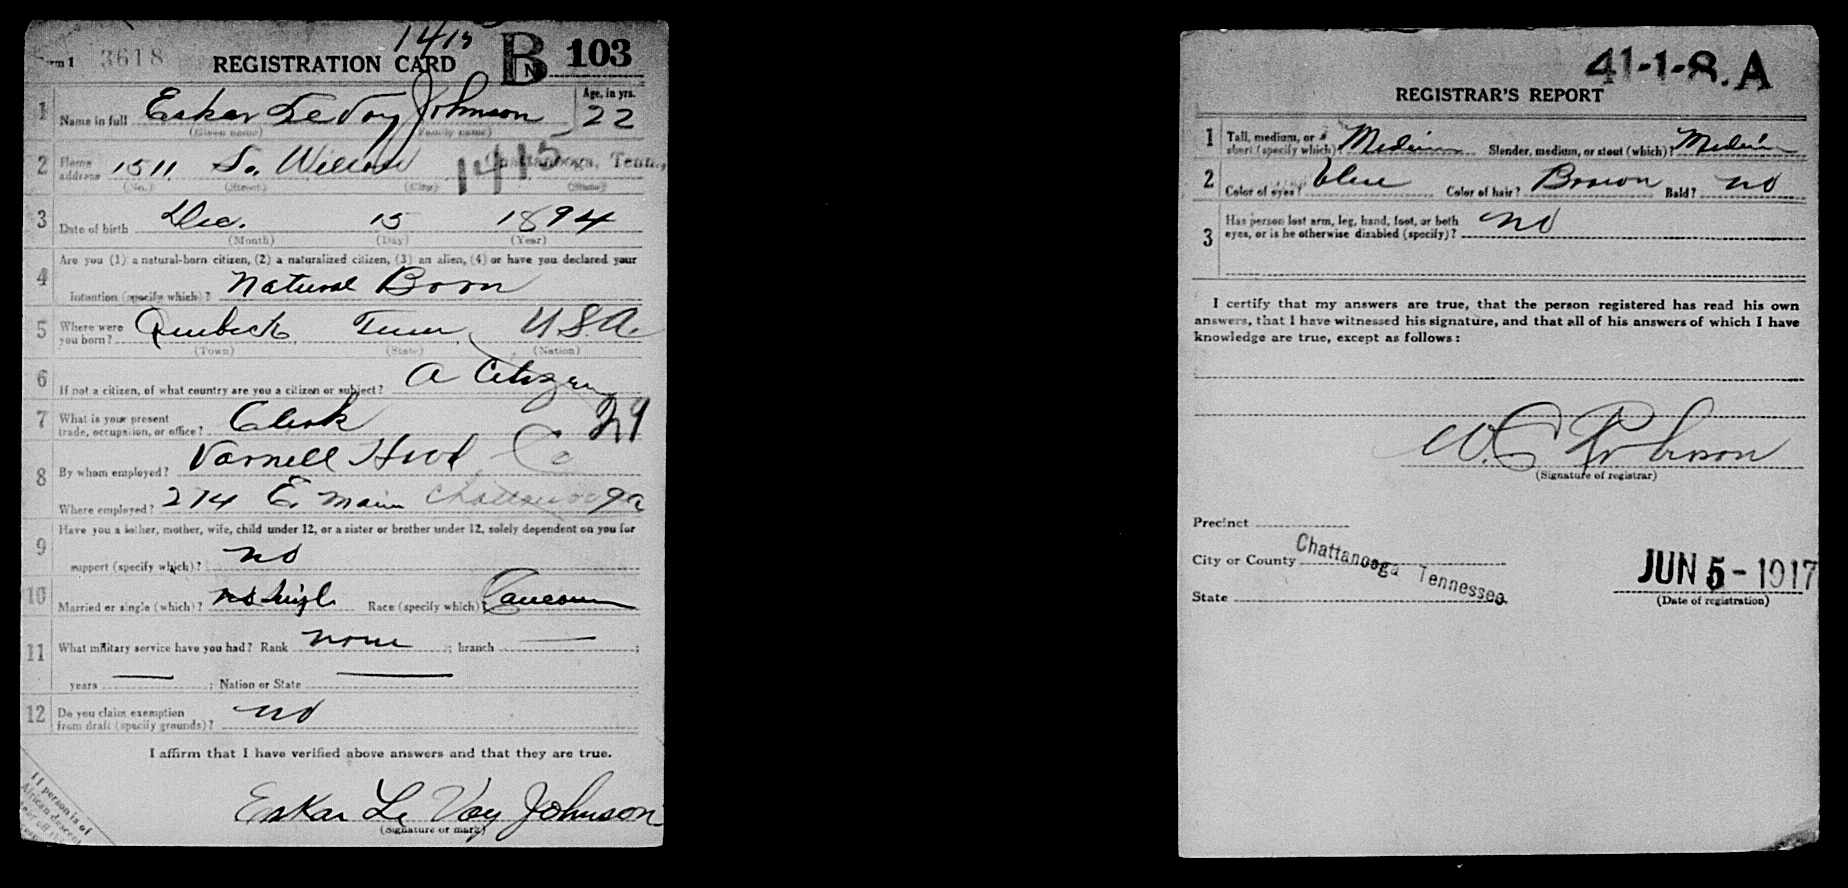 1415
Form 1 3618 REGISTRATION CARD B No. 103
1 Name in full Eskar Le Voy Johnson Age, in yrs. 22
(Given name) (Family name)
2 Home address 1511 So. Willow 1415 Chattanooga, Tenn.,
(No.) (Street) (City) (State)
3 Date of birth Dec. 15 1894
(Month) (Day) (Year)
4 Are you (1) a natural-born citizen, (2) a naturalized citizen, (3) an alien, (4) or have you declared your
intention (specify which)? Natural Born
5 Where were you born? Quebeck Tenn, U.S.A.
(Town) (State) (Nation)
6 If not a citizen, of what country are you a citizen or subject? A Citizen
7 What is your present trade, occupation, or office? Clerk 29
8 By whom employed? Varnell Hwd. Co
Where employed? 274 E. Main Chattanooga
9 Have you a father, mother, wife, child under 12, or a sister or brother under 12, solely dependent on you for
support (specify which)? no
10 Married or single (which)? no single Race (specify which)? Caucasian
11 What military service have you had? Rank none ; branch — ;
years — ; Nation or State —
12 Do you claim exemption from draft (specify grounds)? no
I affirm that I have verified above answers and that they are true.
Eskar Le Voy Johnson
(Signature or mark)
If person is of
African descent
tear off this
corner
41-1-8.A
REGISTRAR'S REPORT
1 Tall, medium, or short (specify which)? Medium Slender, medium, or stout (which)? Medium
2 Color of eyes? blue Color of hair? Brown Bald? no
3 Has person lost arm, leg, hand, foot, or both
eyes, or is he otherwise disabled (specify)? no
I certify that my answers are true, that the person registered has read his own
answers, that I have witnessed his signature, and that all of his answers of which I have
knowledge are true, except as follows:
W. C. Robinson
(Signature of registrar)
Precinct
City or County Chattanooga Tennessee. JUN 5 - 1917
State (Date of registration)